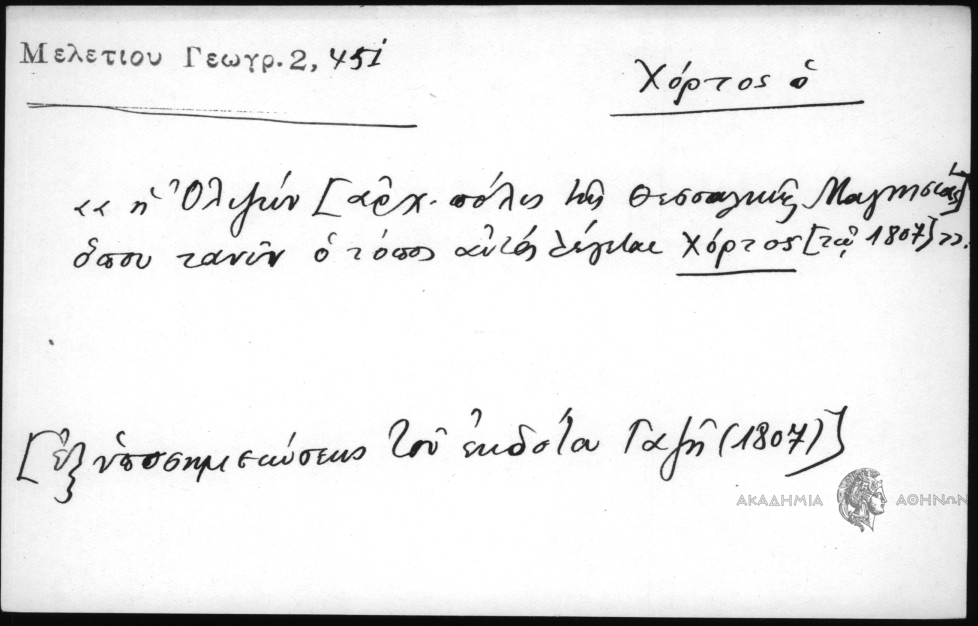 Μελετιου Γεωγρ. 2, 451
Χόρτος ὁ
«ἡ Ὀλιζών [ἀρχ. πόλις τῆς Θεσσαλικῆς Μαγνησίας]
ὅπου τανῦν ὁ τόπος αὐτός λέγεται Χόρτος [τῷ 1807]».
[ἐξ ὑποσημειώσεως τοῦ ἐκδότου Γαζῆ (1807)]
ΑΚΑΔΗΜΙΑ ΑΘΗΝΩΝ